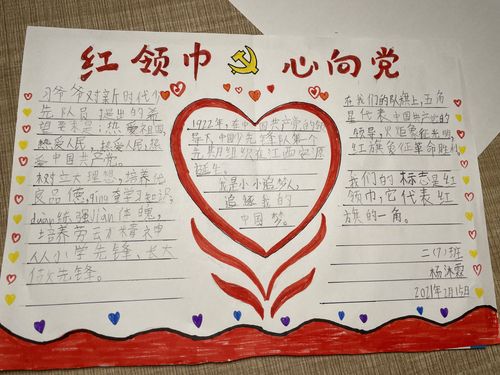 红领巾 心向党
习爷爷对新时代少
先队员提出的希
望要求是：热爱祖国，
热爱人民，热爱人民，热
爱中国共产党。
树立大理想，培养优
良品德，qing查学习知识，
duan练强jian体魄，
培养劳云力精神
人人小学先锋、长大
做先锋。
1922年，在中国共产党的领
导下，中国少先锋队第一个
诞生。
我是小小追梦人，
追逐我的
中国梦。
在我们的队旗上，五角
星代表中国共产党的
领导，火炬象征光明，
红旗象征革命胜利
我们的标志是红
领巾，它代表红
旗的一角。
二(1)班
杨沐霖
2021年2月15日